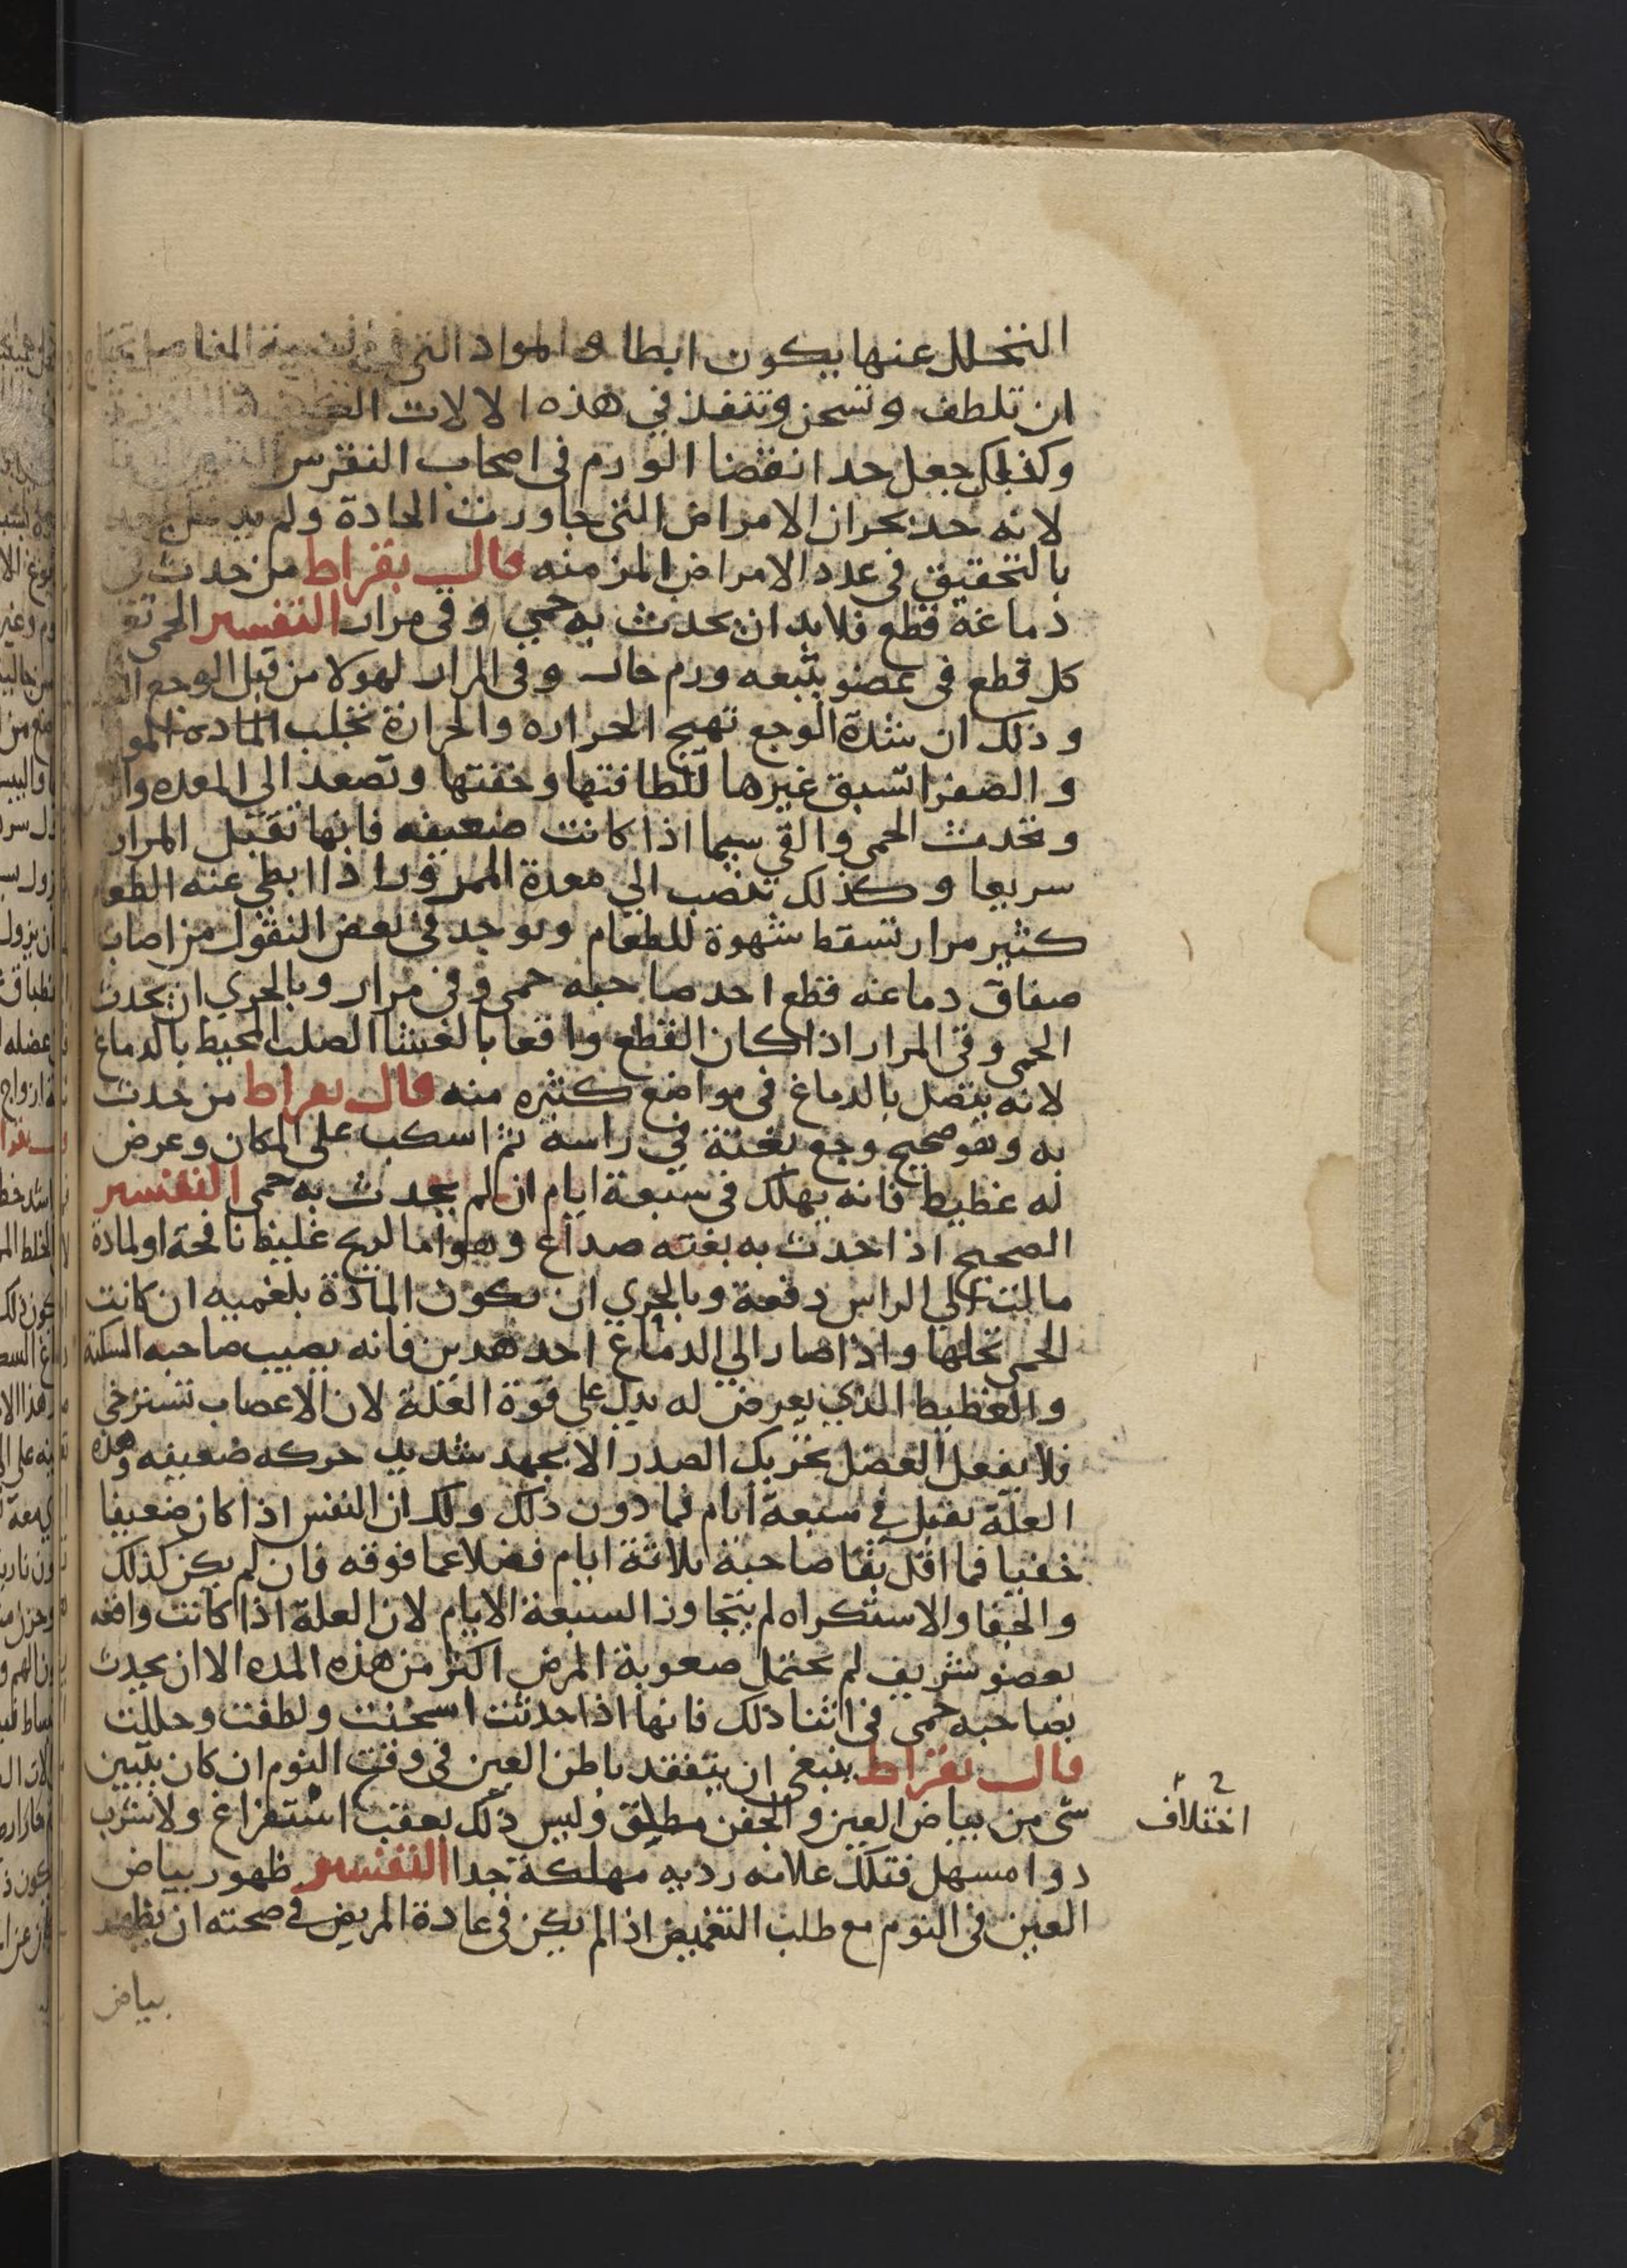 التحلل عنها يكون ابطا و المواد التي في المفاصل تحتاج
ان تلطف وتسخن وتنفذ في هذه الالات
وكذلك جعل حد انقضا الورم في اصحاب النقرس
لانه حد بحران الامراض التي جاورت الحادة ولم
بالتحقيق في عدد الامراض المزمنه قال بقراط من حدث في
دماغه قطع فلابد ان يحدث به حمي وقي مرار التفسير الحمي
كل قطع في عضو يتبعه ورم حار وقي المرار لهولا من قبل الوجع
وذلك ان شدة الوجع تهيج الحراره والحرارة تجلب المادة
والصفرا تسبق غيرها للطافتها وخفتها وتصعد الي المعده
وتحدث الحمي والقي سيما اذا كانت ضعيفه فانها تقبل المرار
سريعا وكذلك تنصب الي معدة الممرور اذا ابطي عنه الطعا
كثير مرار تسقط شهوة للطعام ويوجد في بعض النقول من اصاب
صفاق دماغه قطع احد صاحبه حمي وقي مرار وبالحري ان يحدث
الحمي وقي المرار اذا كان القطع واقعا بالغشا الصلب المحيط بالدماغ
لانه يتصل بالدماغ في مواضع كثيره منه قال بقراط من حدث
به وهو صحيح وجع بغتة في راسه ثم اسكب علي المكان وعرض
له غطيط فانه يهلك في سبعة ايام ان لم يحدث به حمي التفسير
الصحيح اذا حدث به بغته صداع وهو اما لريح غليظ نافخة او لمادة
مالت الي الراس دفعة وبالحري ان يكون المادة بلغميه ان كانت
الحمي تحلها واذا صار الي الدماغ احد هدين فانه يصيب صاحبه السكتة
والغطيط الذي يعرض له يدل علي قوة العلة لان الاعصاب تسترخي
فلا يفعل العضل تحريك الصدر الا بجهد شديد حركه ضعيفه وهذه
العلة تقتل في سبعة ايام فما دون ذلك وذلك ان النفس اذا كان ضعيفا
خفيا فما اقل بقا صاحبة ثلاثة ايام فضلا عما فوقه فان لم يكن كذلك
والخفا والاستكراه لم يتجاوز السبعة الايام لان العلة اذا كانت واقعه
بعضو شريف لم يحتمل صعوبة المرض اكثر من هذه المده الا ان يحدث
بصاحبه حمي في اثنا ذلك فانها اذا حدثت اسخنت ولطفت وحللت
قال بقراط ينبغي ان يتفقد باطن العين في وقت النوم ان كان يتبين
شي من بياض العين والجفن مطلق وليس ذلك بعقب استفراغ ولا شرب
دوا مسهل فتلك علامه رديه مهلكة جدا التفسير ظهور بياض
العين في النوم مع طلب التغميض اذا لم يكن في عادة المريض في صحته ان يظهر
بياض
اختلاف